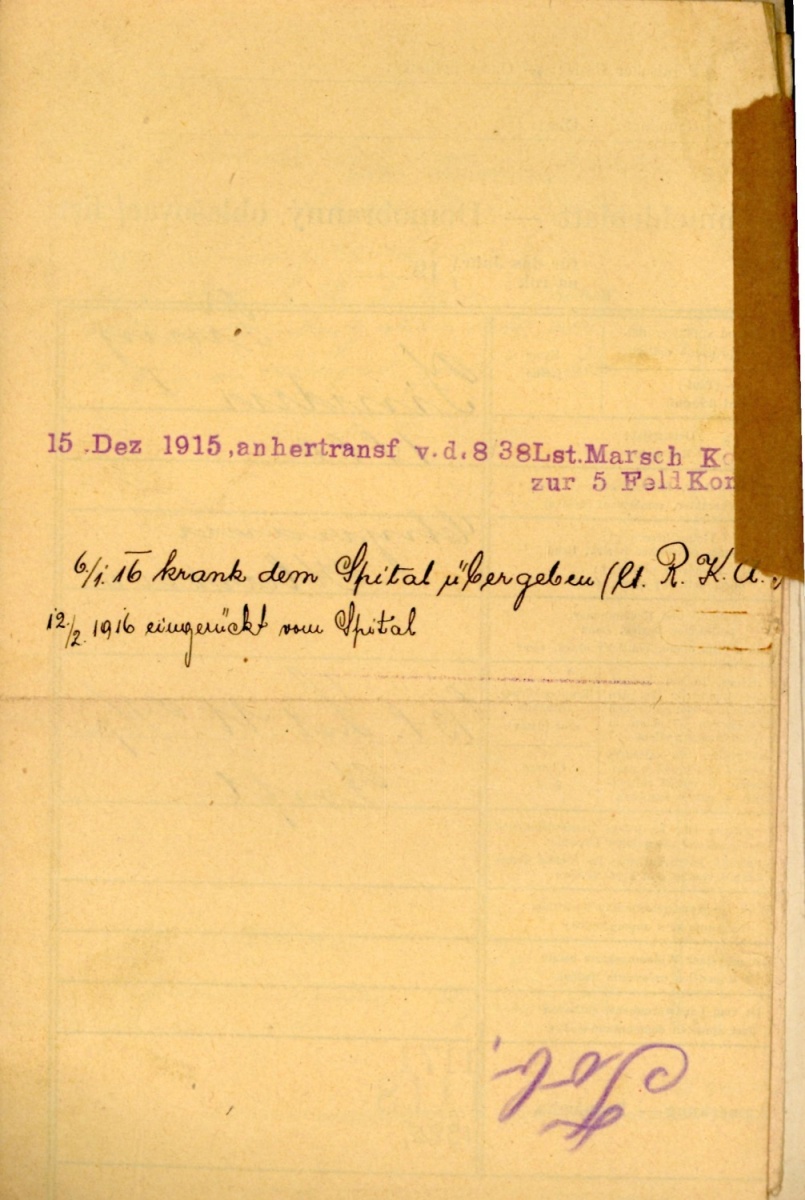 15 .Dez 1915,anhertransf v.d.8 38Lst.Marsch K
zur 5 FeldKom
6/1. 16 krank dem Spital übergeben (lt. R. K. A.
12./2. 1916 eingerückt vom Spital